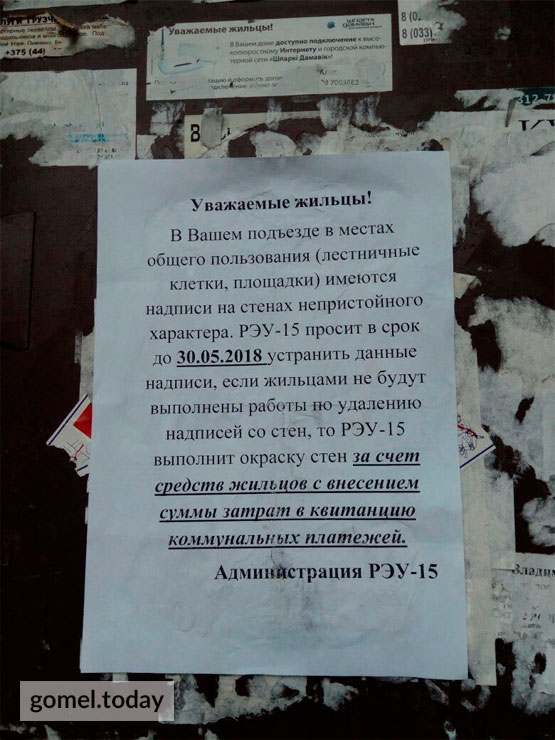 +375 (44)
Уважаемые жильцы!
В Вашем доме доступно подключение к высо-
коскоростному Интернету и городской компью-
терной сети «Шпаркі Дамавік»!
8 (0
8 (033)
8
Уважаемые жильцы!
В Вашем подъезде в местах
общего пользования (лестничные
клетки, площадки) имеются
надписи на стенах непристойного
характера. РЭУ-15 просит в срок
до 30.05.2018 устранить данные
надписи, если жильцами не будут
выполнены работы по удалению
надписей со стен, то РЭУ-15
выполнит окраску стен за счет
средств жильцов с внесением
суммы затрат в квитанцию
коммунальных платежей.
Администрация РЭУ-15
gomel.today